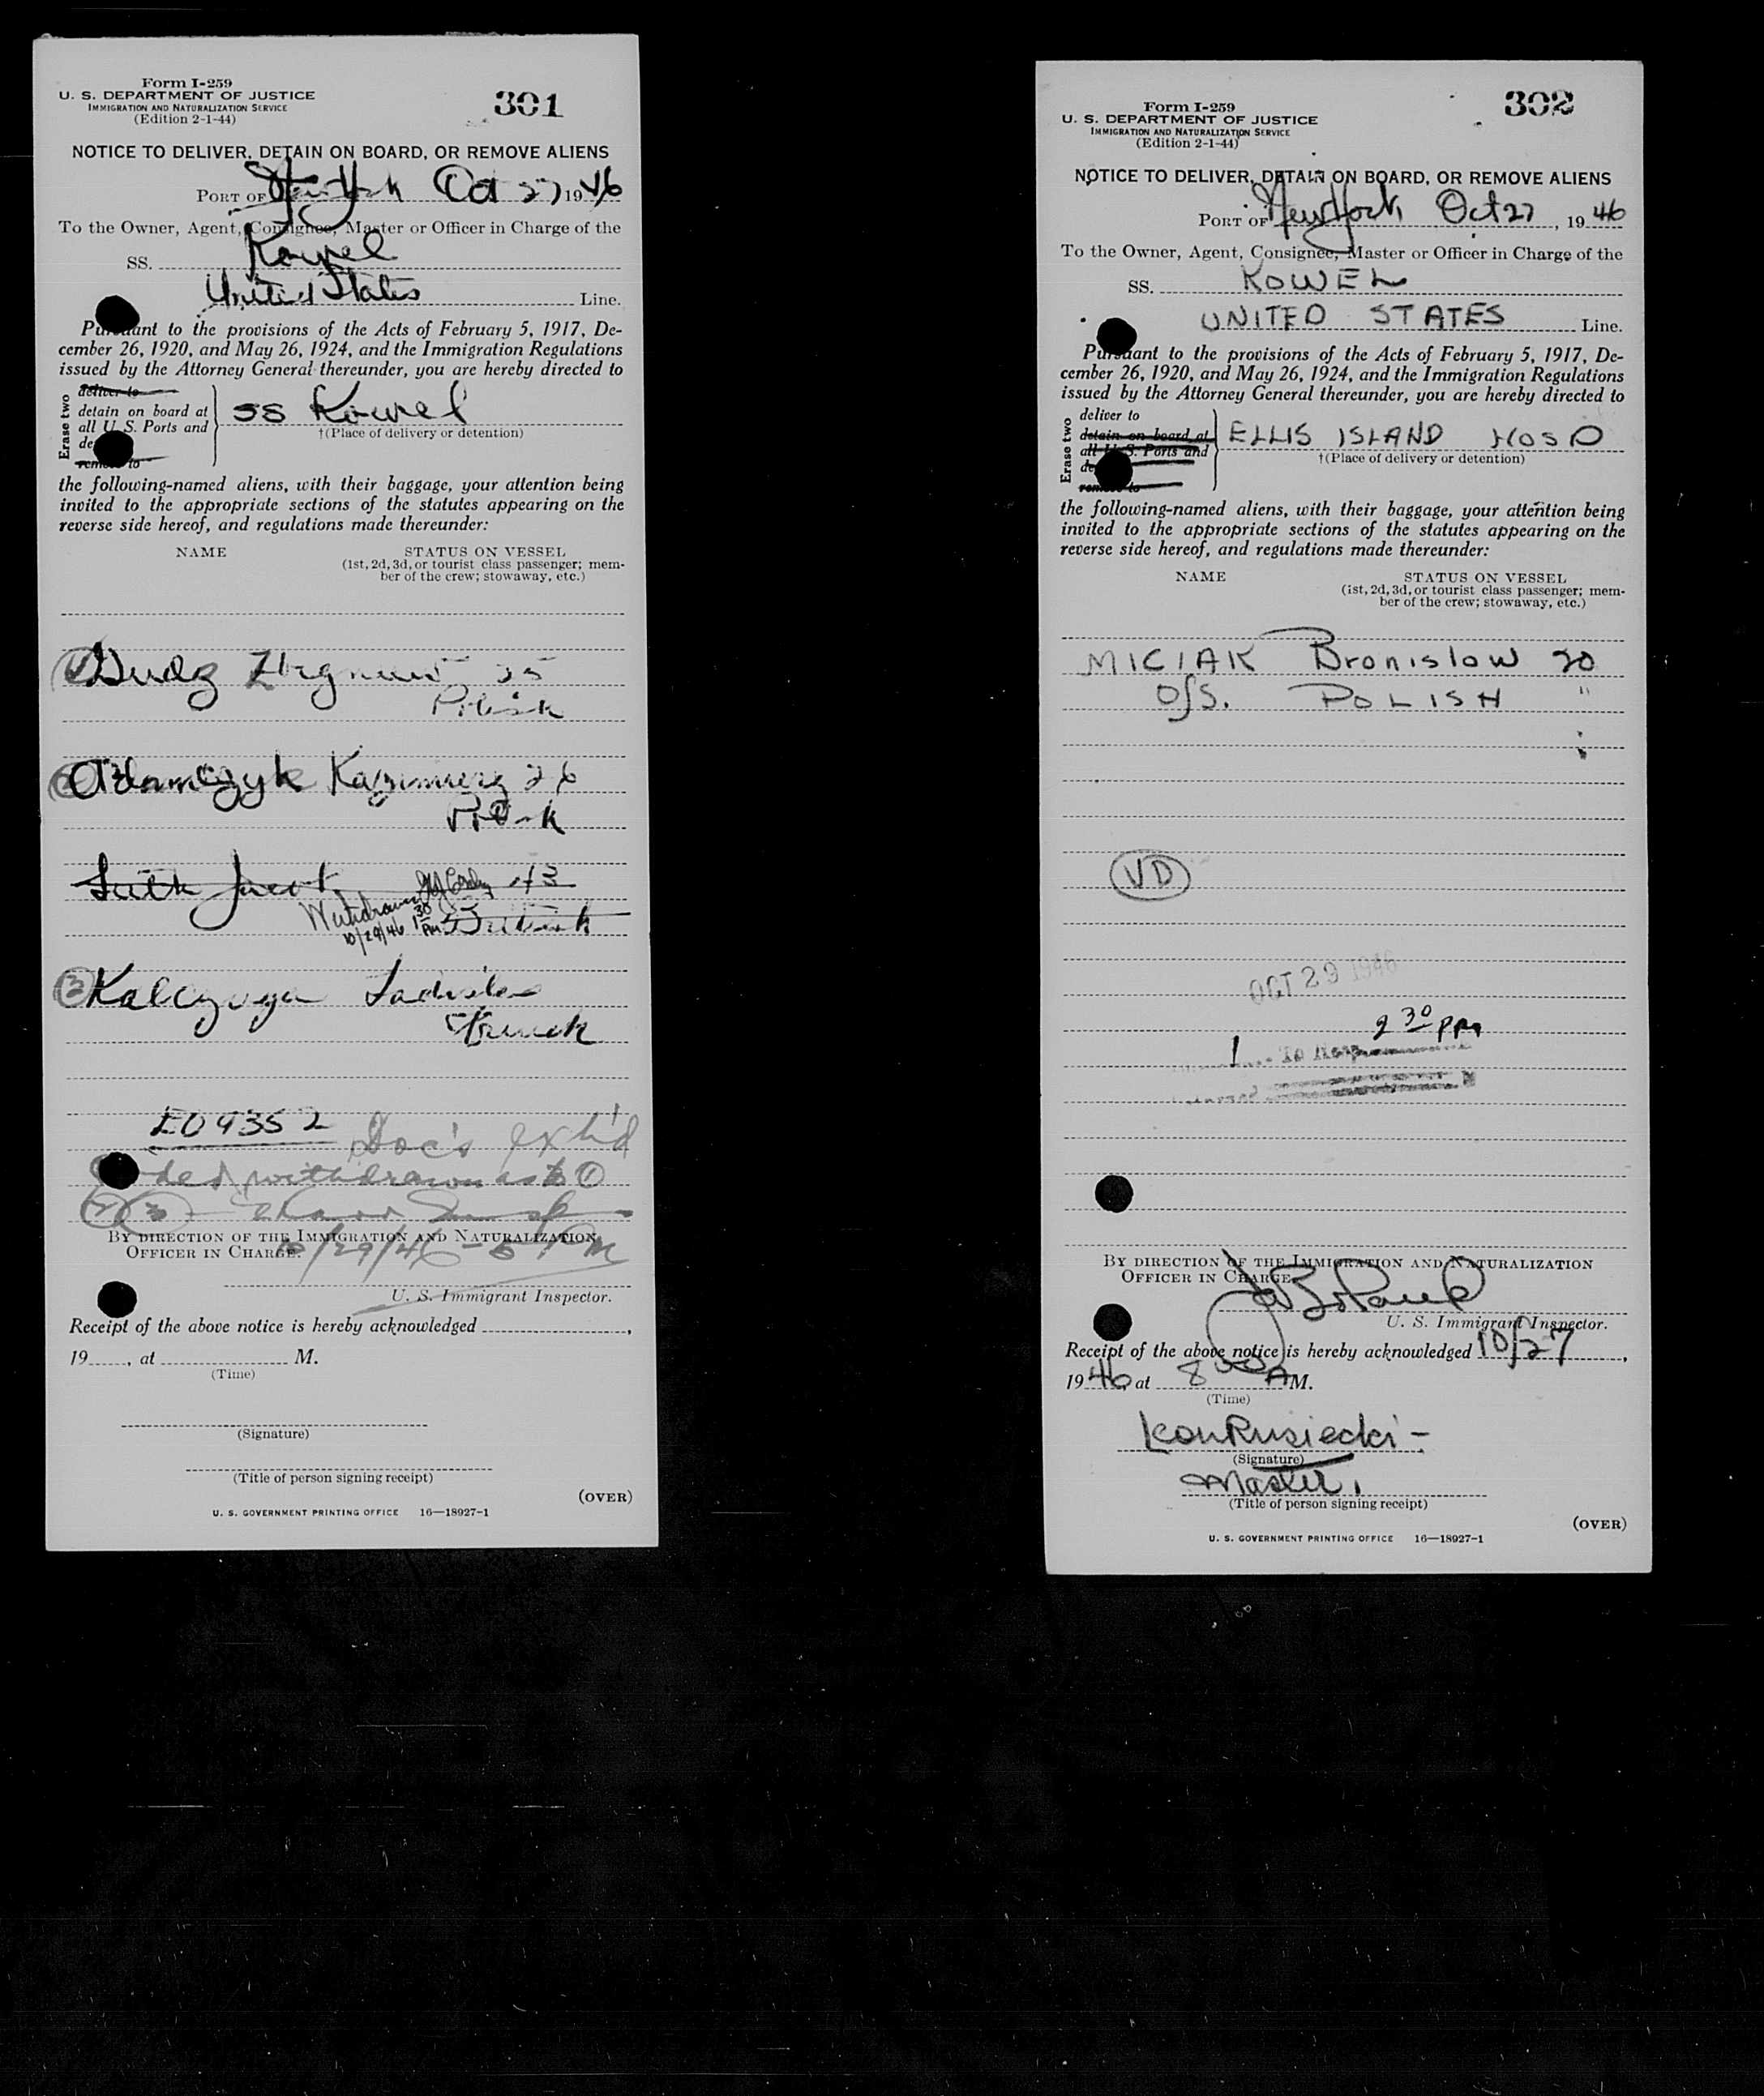 Form I-259
U. S. DEPARTMENT OF JUSTICE
IMMIGRATION AND NATURALIZATION SERVICE
(Edition 2-1-44)
301
NOTICE TO DELIVER, DETAIN ON BOARD, OR REMOVE ALIENS
PORT OF New York Oct 27 1946
To the Owner, Agent, Consignee, Master or Officer in Charge of the
SS. Kowel
United States Line.
Pursuant to the provisions of the Acts of February 5, 1917, De-
cember 26, 1920, and May 26, 1924, and the Immigration Regulations
issued by the Attorney General thereunder, you are hereby directed to
Erase two
deliver to
detain on board at
all U. S. Ports and
de
remove to
SS Kowel
†(Place of delivery or detention)
the following-named aliens, with their baggage, your attention being
invited to the appropriate sections of the statutes appearing on the
reverse side hereof, and regulations made thereunder:
NAME STATUS ON VESSEL
(1st, 2d, 3d, or tourist class passenger; mem-
ber of the crew; stowaway, etc.)
Dudz 25
Polish
Adamczyk Kazimierz 26
Polish
43
Withdrawn
10/29/46 1 30 PM British
③ Kalczuga
French
E09352 Doc's exh'd
withdrawn as to ①
② ③
BY DIRECTION OF THE IMMIGRATION AND NATURALIZATION
OFFICER IN CHARGE:
10/29/46 - 5 PM
U. S. Immigrant Inspector.
Receipt of the above notice is hereby acknowledged ,
19 , at M.
(Time)
(Signature)
(Title of person signing receipt)
(OVER)
U. S. GOVERNMENT PRINTING OFFICE 16—18927-1
Form I-259
U. S. DEPARTMENT OF JUSTICE
IMMIGRATION AND NATURALIZATION SERVICE
(Edition 2-1-44)
302
NOTICE TO DELIVER, DETAIN ON BOARD, OR REMOVE ALIENS
PORT OF New York Oct 27, 1946
To the Owner, Agent, Consignee, Master or Officer in Charge of the
SS. KOWEL
UNITED STATES Line.
Pursuant to the provisions of the Acts of February 5, 1917, De-
cember 26, 1920, and May 26, 1924, and the Immigration Regulations
issued by the Attorney General thereunder, you are hereby directed to
Erase two
deliver to
detain on board at
all U. S. Ports and
de
remove to
ELLIS ISLAND HOSP
†(Place of delivery or detention)
the following-named aliens, with their baggage, your attention being
invited to the appropriate sections of the statutes appearing on the
reverse side hereof, and regulations made thereunder:
NAME STATUS ON VESSEL
(1st, 2d, 3d, or tourist class passenger; mem-
ber of the crew; stowaway, etc.)
MICIAK Bronislow 20
O/S. POLISH "
VD
OCT 29 1946
2 30 PM
1 To Hosp
BY DIRECTION OF THE IMMIGRATION AND NATURALIZATION
OFFICER IN CHARGE:
U. S. Immigrant Inspector.
Receipt of the above notice is hereby acknowledged 10/27,
1946, at 8 00 A M.
(Time)
Leon Rusiecki -
(Signature)
Master.
(Title of person signing receipt)
(OVER)
U. S. GOVERNMENT PRINTING OFFICE 16—18927-1